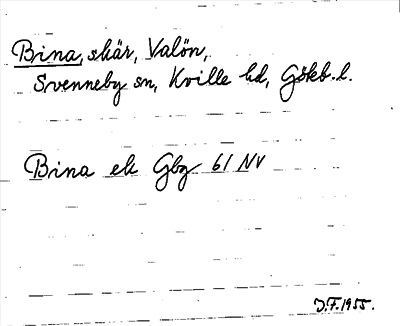 Bina, skär, Valön,
Svenneby sn, Kville hd, Gökb. l.
Bina ek Gbg 61 NV
J.F. 1955.